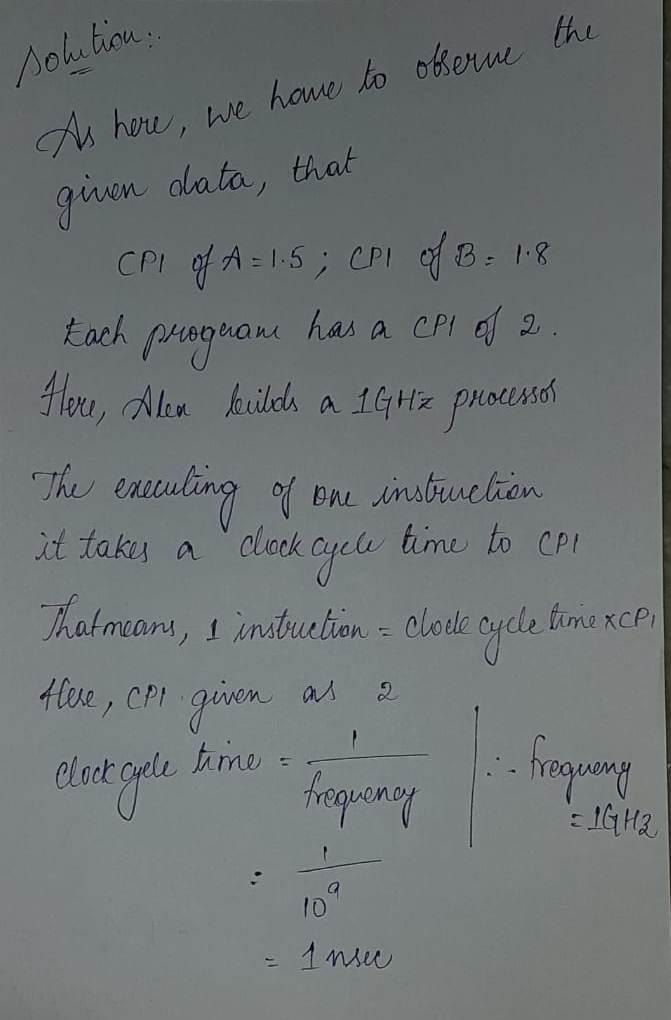 Solution:.
As here, we have to observe the
given data, that
CPI of A = 1.5 ; CPI of B = 1.8
Each program has a CPI of 2.
Here, Alen builds a 1GHz processor
The executing of one instruction
it takes a clock cycle time to CPI
That means, 1 instruction = clock cycle time x CPI
Here, CPI given as 2
clock cycle time = 1 / frequency | ∴ frequeny = 1GHz
= 1 / 10^9
= 1 nsec